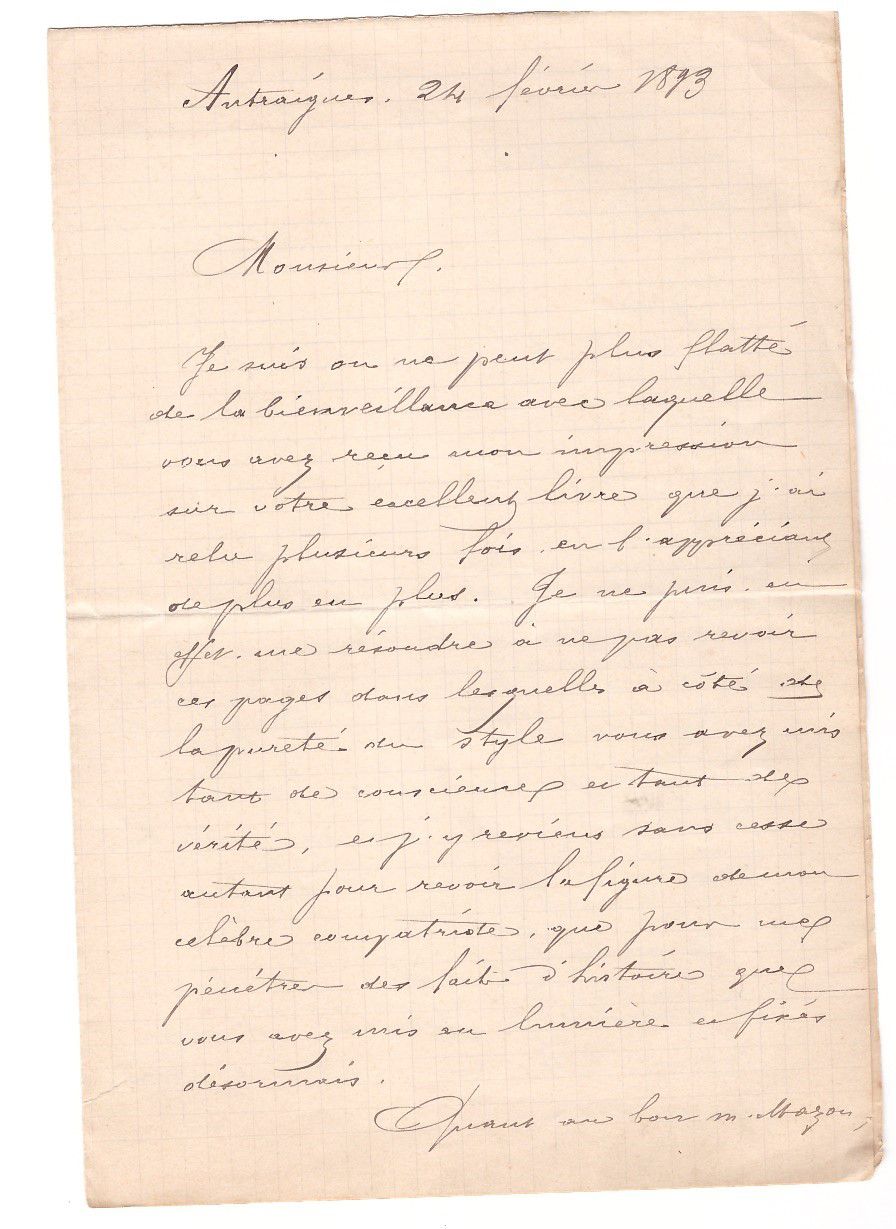 Antraigues. 24 février 1893
Monsieur.
Je suis on ne peut plus flatté
de la bienveillance avec laquelle
vous avez reçu mon impression
sur votre excellent livre que j'ai
relu plusieurs fois en l'appréciant
de plus en plus. Je ne puis. en
effet. me résoudre à ne pas revoir
ces pages dans lesquelles à côté de
la pureté du style vous avez mis
tant de conscience et tant de
vérité, et j'y reviens sans cesse
autant pour revoir la figure de mon
célèbre compatriote, que pour me
pénétrer des faits d'histoire que
vous avez mis en lumière et fixés
désormais.
Quant au bon M. Mazon,